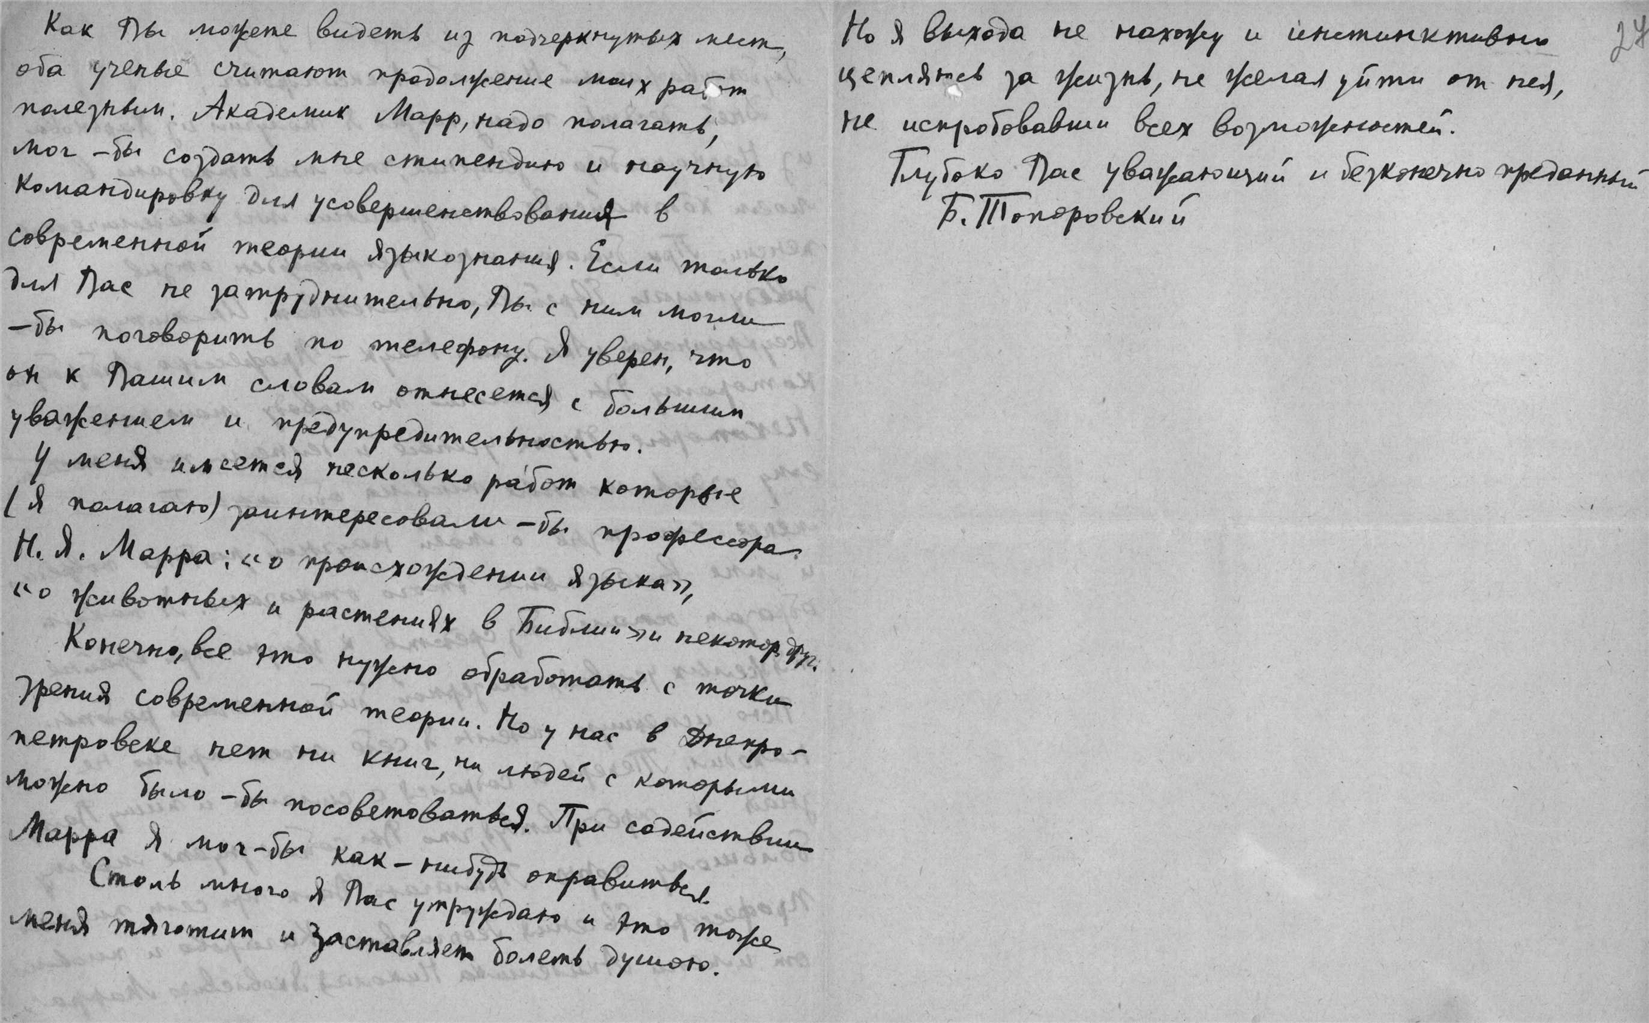 Как Вы можете видеть из подчеркнутых мест,
оба ученые считают продолжение моих работ
полезным. Академик Марр, надо полагать,
мог-бы создать мне стипендию и научную
командировку для усовершенствования в
современной теории языкознания. Если только
для Вас не затруднительно, Вы с ним могли
-бы поговорить по телефону. Я уверен, что
он к Вашим словам отнесется с большим
уважением и предупредительностью.
У меня имеется несколько работ которые
(я полагаю) заинтересовали-бы профессора
Н. Я. Марра: «о происхождении языка»,
«о животных и растениях в Библии» и некотор. друг.
Конечно, все это нужно обработать с точки
зрения современной теории. Но у нас в Днепро-
петровске нет ни книг, ни людей с которыми
можно было-бы посоветоваться. При содействии
Марра я мог-бы как-нибудь оправиться.
Столь много я Вас утруждаю и это тоже
меня тяготит и заставляет болеть душою.
Но я выхода не нахожу и инстинктивно
цепляюсь за жизнь, не желая уйти от нея,
не испробовавши всех возможностей.
Глубоко Вас уважающий и безконечно преданный
Б. Топоровский